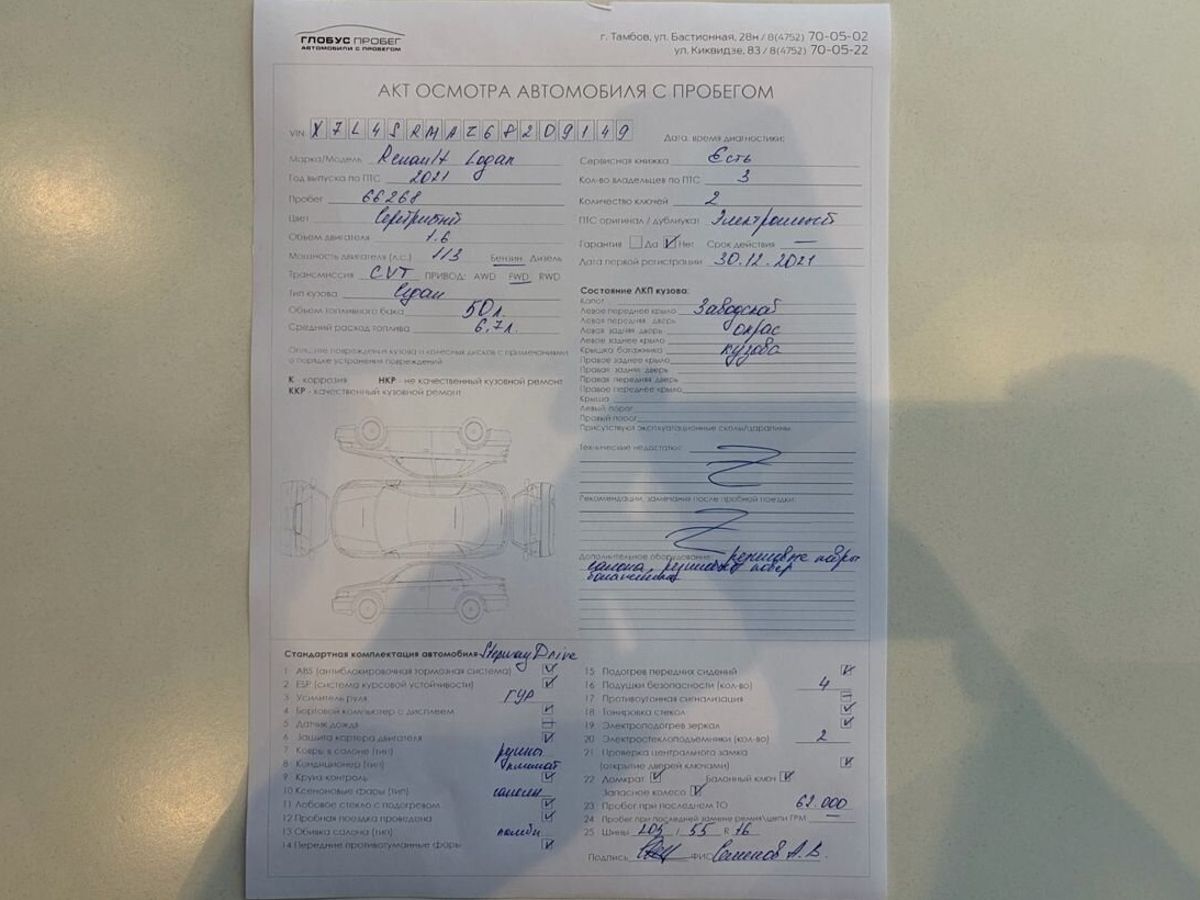 ГЛОБУС ПРОБЕГ
АВТОМОБИЛИ С ПРОБЕГОМ
г. Тамбов, ул. Бастионная, 28н / 8(4752) 70-05-02
ул. Киквидзе, 83 / 8(4752) 70-05-22
АКТ ОСМОТРА АВТОМОБИЛЯ С ПРОБЕГОМ
VIN X7L4SRMAZ68209149
Дата, время диагностики:
Марка/Модель Renault Logan
Год выпуска по ПТС 2021
Пробег 66268
Цвет Серебристый
Объем двигателя 1.6
Мощность двигателя (л.с.) 113 Бензин Дизель
Трансмиссия CVT ПРИВОД: AWD FWD RWD
Тип кузова Седан
Объем топливного бака 50 л.
Средний расход топлива 6.7 л.
Описание повреждений кузова и колесных дисков с примечаниями
о порядке устранения повреждений
К - коррозия НКР - не качественный кузовной ремонт
ККР - качественный кузовной ремонт
Сервисная книжка Есть
Кол-во владельцев по ПТС 3
Количество ключей 2
ПТС оригинал / дубликат Электронный
Гарантия Да Нет Срок действия —
Дата первой регистрации 30.12.2021
Состояние ЛКП кузова:
Капот
Левое переднее крыло Заводской
Левая передняя дверь
Левая задняя дверь окрас
Левое заднее крыло
Крышка багажника кузова
Правое заднее крыло
Правая задняя дверь
Правая передняя дверь
Правое переднее крыло
Крыша
Левый порог
Правый порог
Присутствуют эксплуатационные сколы/царапины
Технические недостатки:
Рекомендации, замечания после пробной поездки:
Дополнительное оборудование: резиновые ковры
салона, резиновый ковер
багажника
Стандартная комплектация автомобиля Stepway Drive
1 ABS (антиблокировочная тормозная система)
2 ESP (система курсовой устойчивости)
3 Усилитель руля ГУР
4 Бортовой компьютер с дисплеем
5 Датчик дождя
6 Защита картера двигателя
7 Ковры в салоне (тип)
8 Кондиционер (тип) климат
9 Круиз контроль
10 Ксеноновые фары (тип)
11 Лобовое стекло с подогревом
12 Пробная поездка проведена
13 Обивка салона (тип)
14 Передние противотуманные фары
15 Подогрев передних сидений
16 Подушки безопасности (кол-во) 4
17 Противоугонная сигнализация
18 Тонировка стекол
19 Электроподогрев зеркал
20 Электростеклоподъемники (кол-во) 2
21 Проверка центрального замка
(открытие дверей ключами)
22 Домкрат Балонный ключ
Запасное колесо
23 Пробег при последнем ТО 62.000
24 Пробег при последней замене ремня/цепи ГРМ —
25 Шины 205 / 55 R 16
Подпись ФИО Семенов А.В.